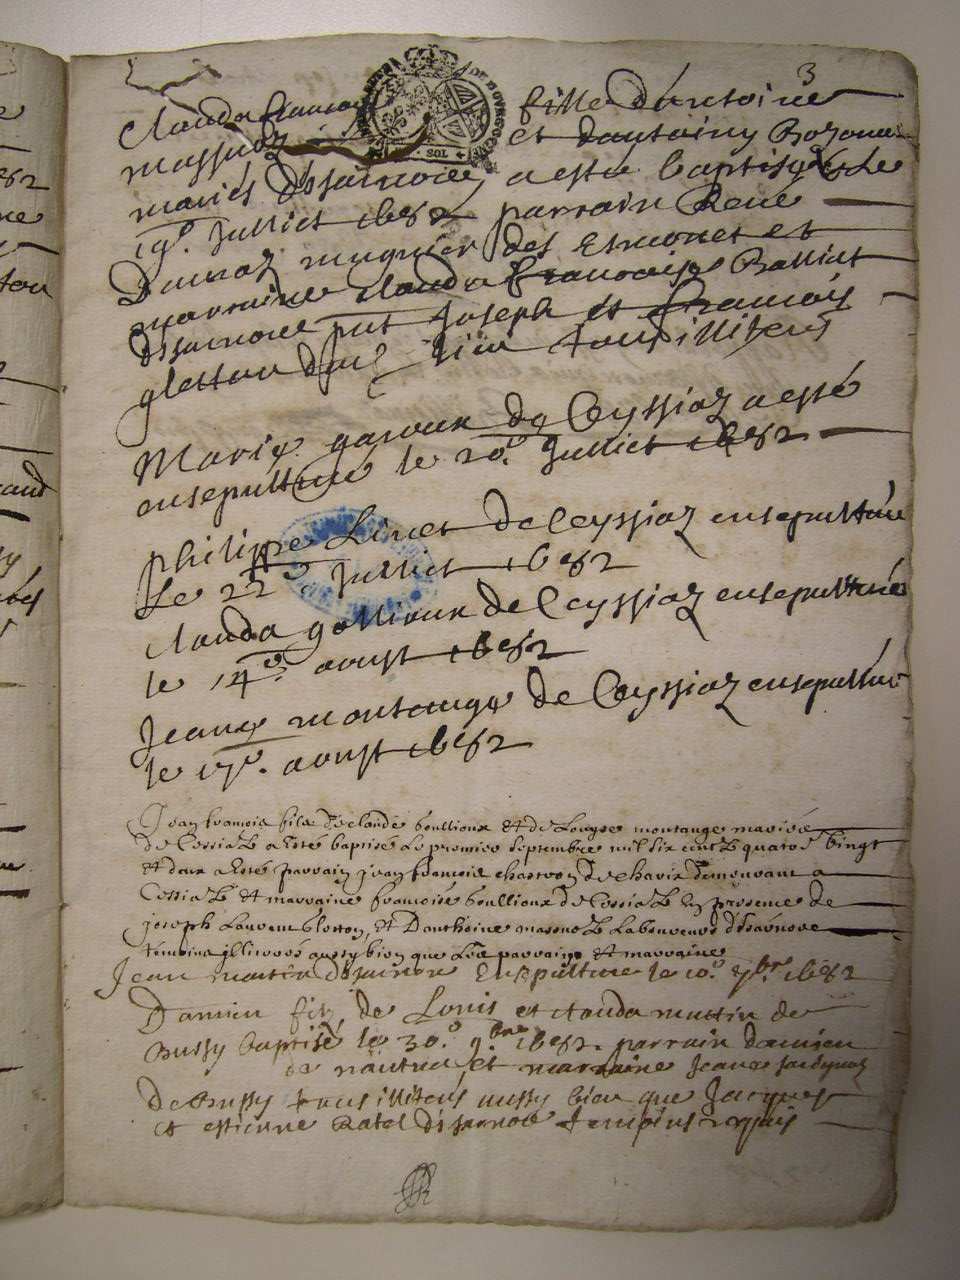 3
Clauda francoise fille dantoine
massuoz et dantoiny Bozonne
mariés disarnore, a esté baptisée le
19e. Juillet 1682 parrain René
Dunoz mugnier des et
marraine Clauda francoise Balliet
disarnore pnt Joseph et francois
gletton dud. lieu tous illiterés
Marie garoux de Ceyssiaz a esté
ensepulturée le 20e. Juillet 1682
philippe Livet de Ceyssiaz ensepulturé
Le 22e Juillet 1682
Clauda gollioux de Ceyssiaz ensepulturée
le 14e. aoust 1682
Jeane montange de Ceyssiaz ensepulturée
le 17e. aoust 1682
Jean francois fils de claude boullioux et de Louyse montange mariés
de Cessiaz a esté baptisé Le premier Septembre mil six centz quatre vingt
et deux a esté parrain jean francois de chavix demeurant a
Cessiaz et marraine francoise boullioux de Cessiaz En presence de
joseph Laurent Gletton, et Danthoine massuoz Laboureurs disarnore
temoins illiterés aussy bien que Les parrain et marraine
Jean disarnore Ensepulturé le 10e. 7bre 1682
Damien filz de Louis et Clauda muttin de
Bussy baptisé le 30e. 9bre 1682. parrain damien
de nantua et marraine Jeane
De Bussy tous illiterés aussy bien que Jacques
et estienne Ratel disarnore temoins requis